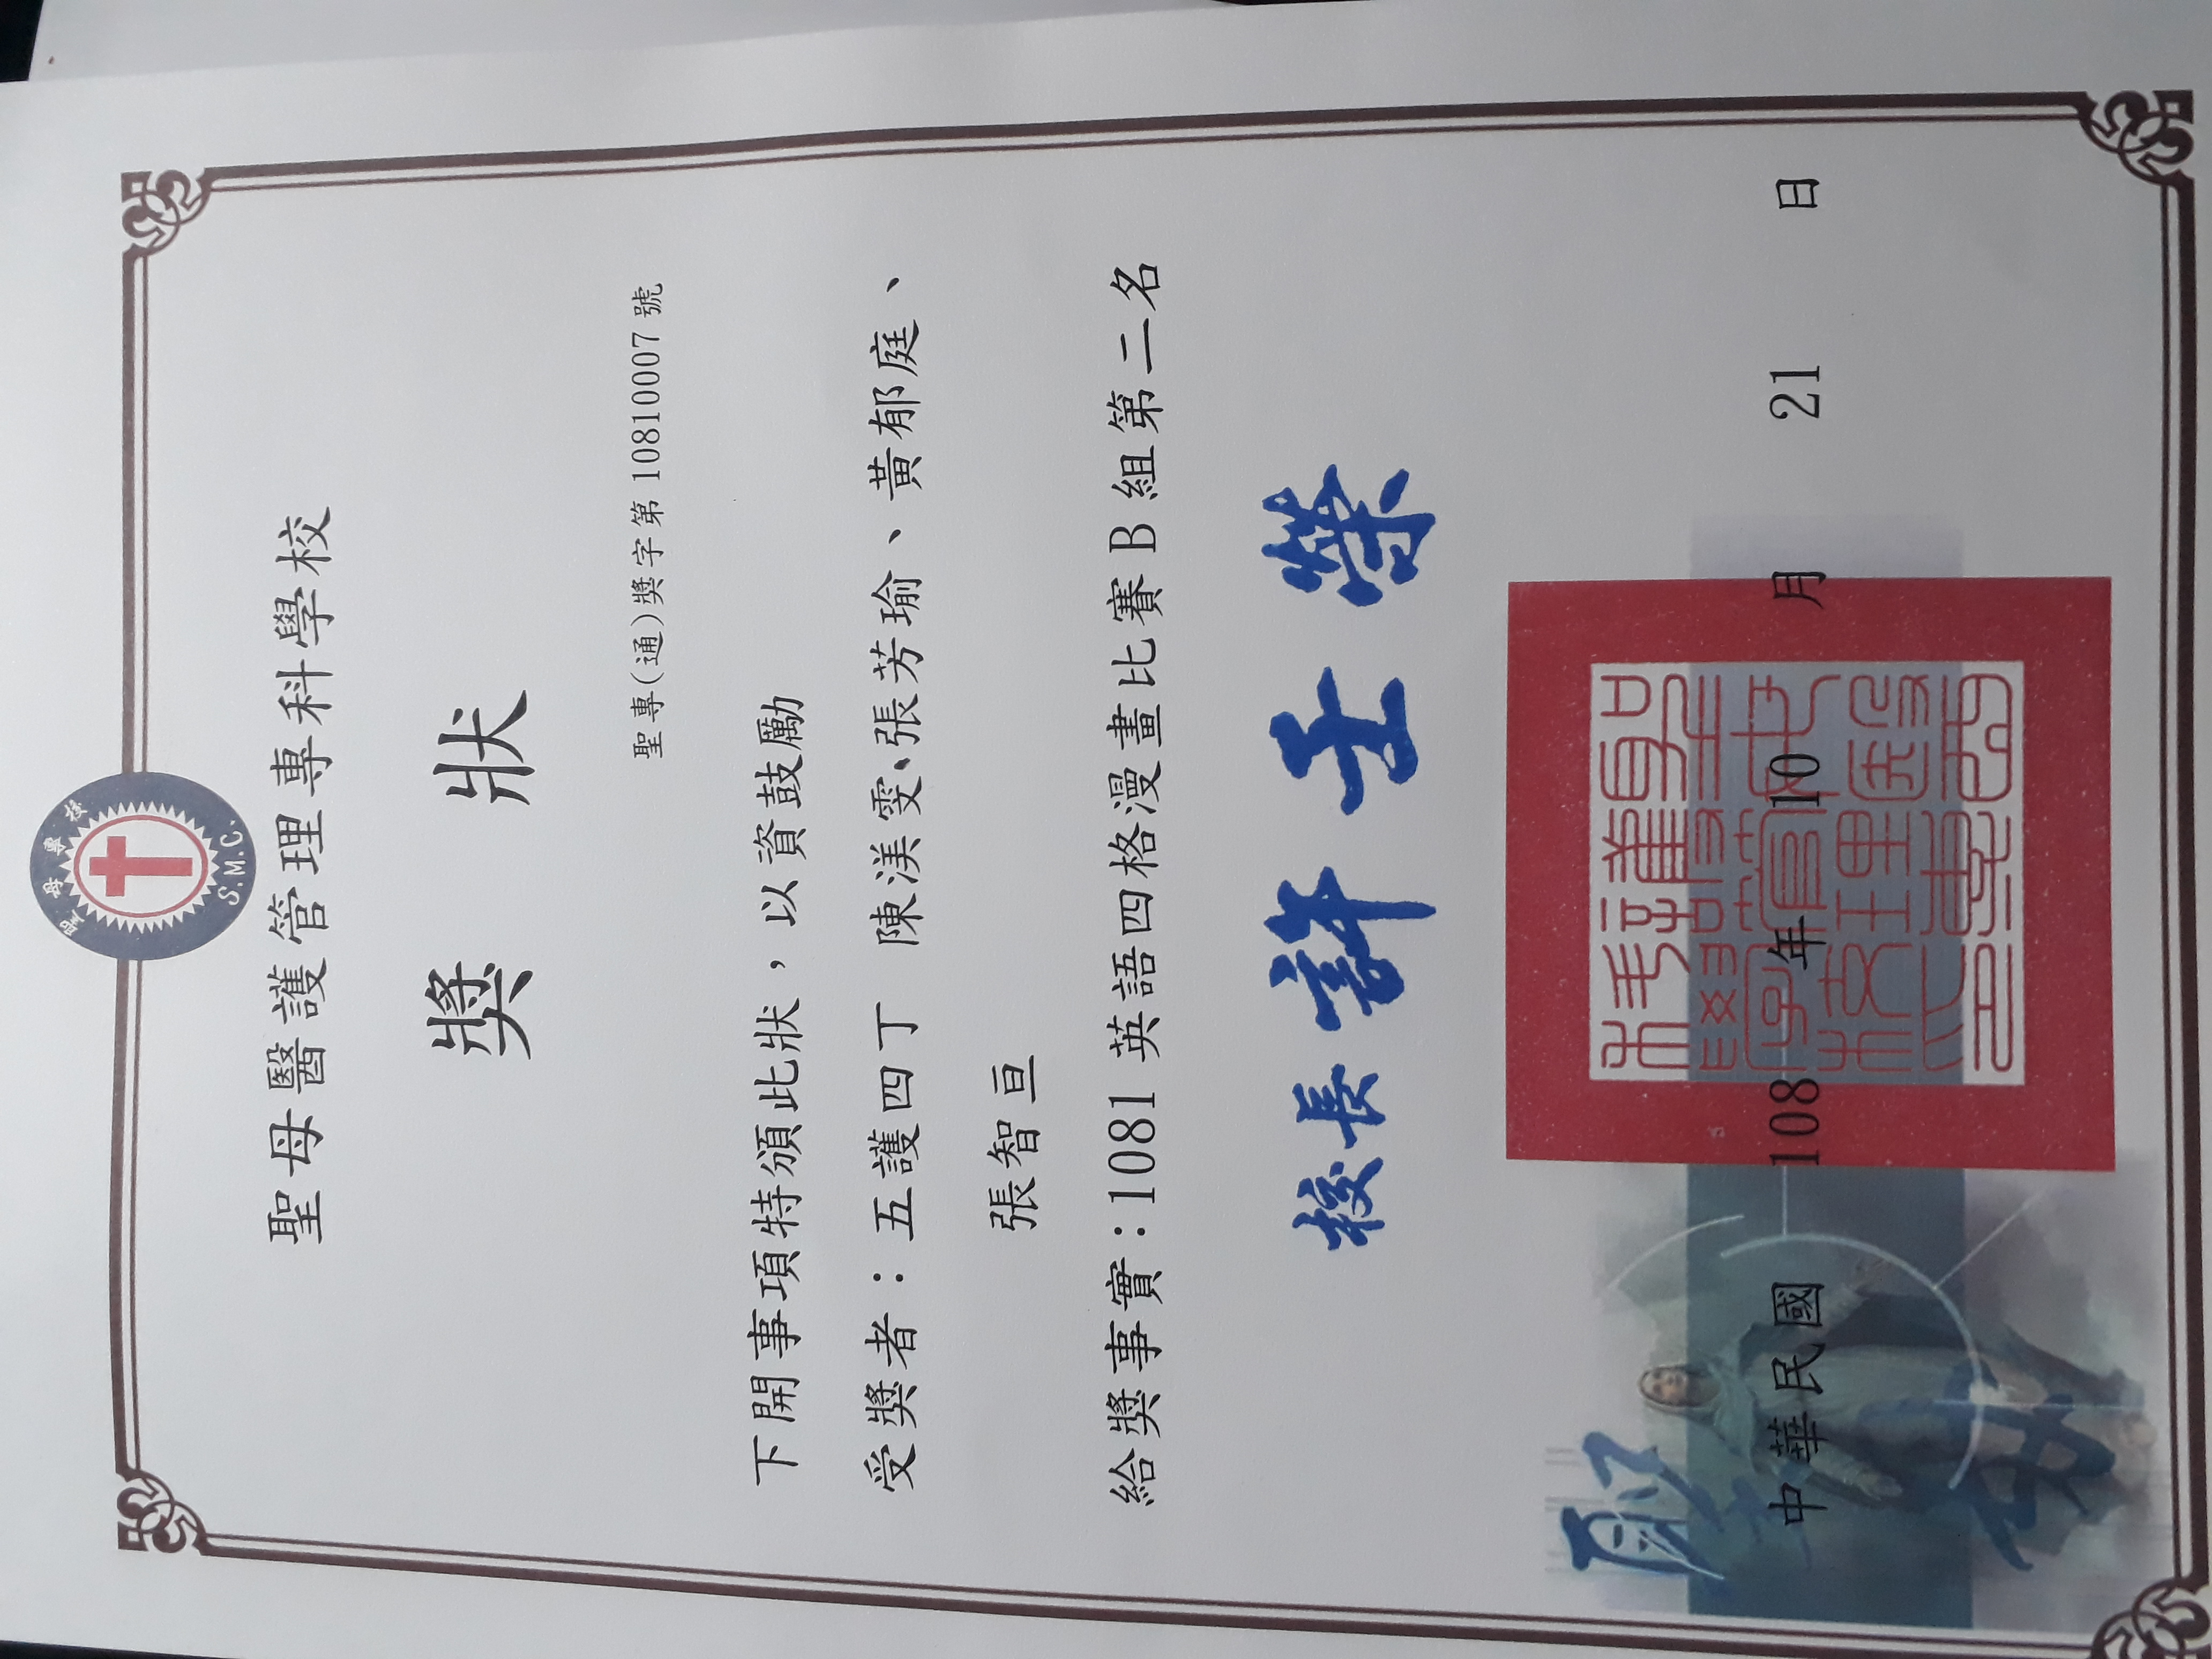 聖母專校
S.M.C.
聖母醫護管理專科學校
獎狀
聖專(通)獎字第10810007號
下開事項特頒此狀，以資鼓勵
受獎者：五護四丁 陳渼雯、張芳瑜、黃郁庭、
張智亘
給獎事實：1081英語四格漫畫比賽B組第二名
校長許壬榮
聖母
中華民國 108 年 10 月 21 日